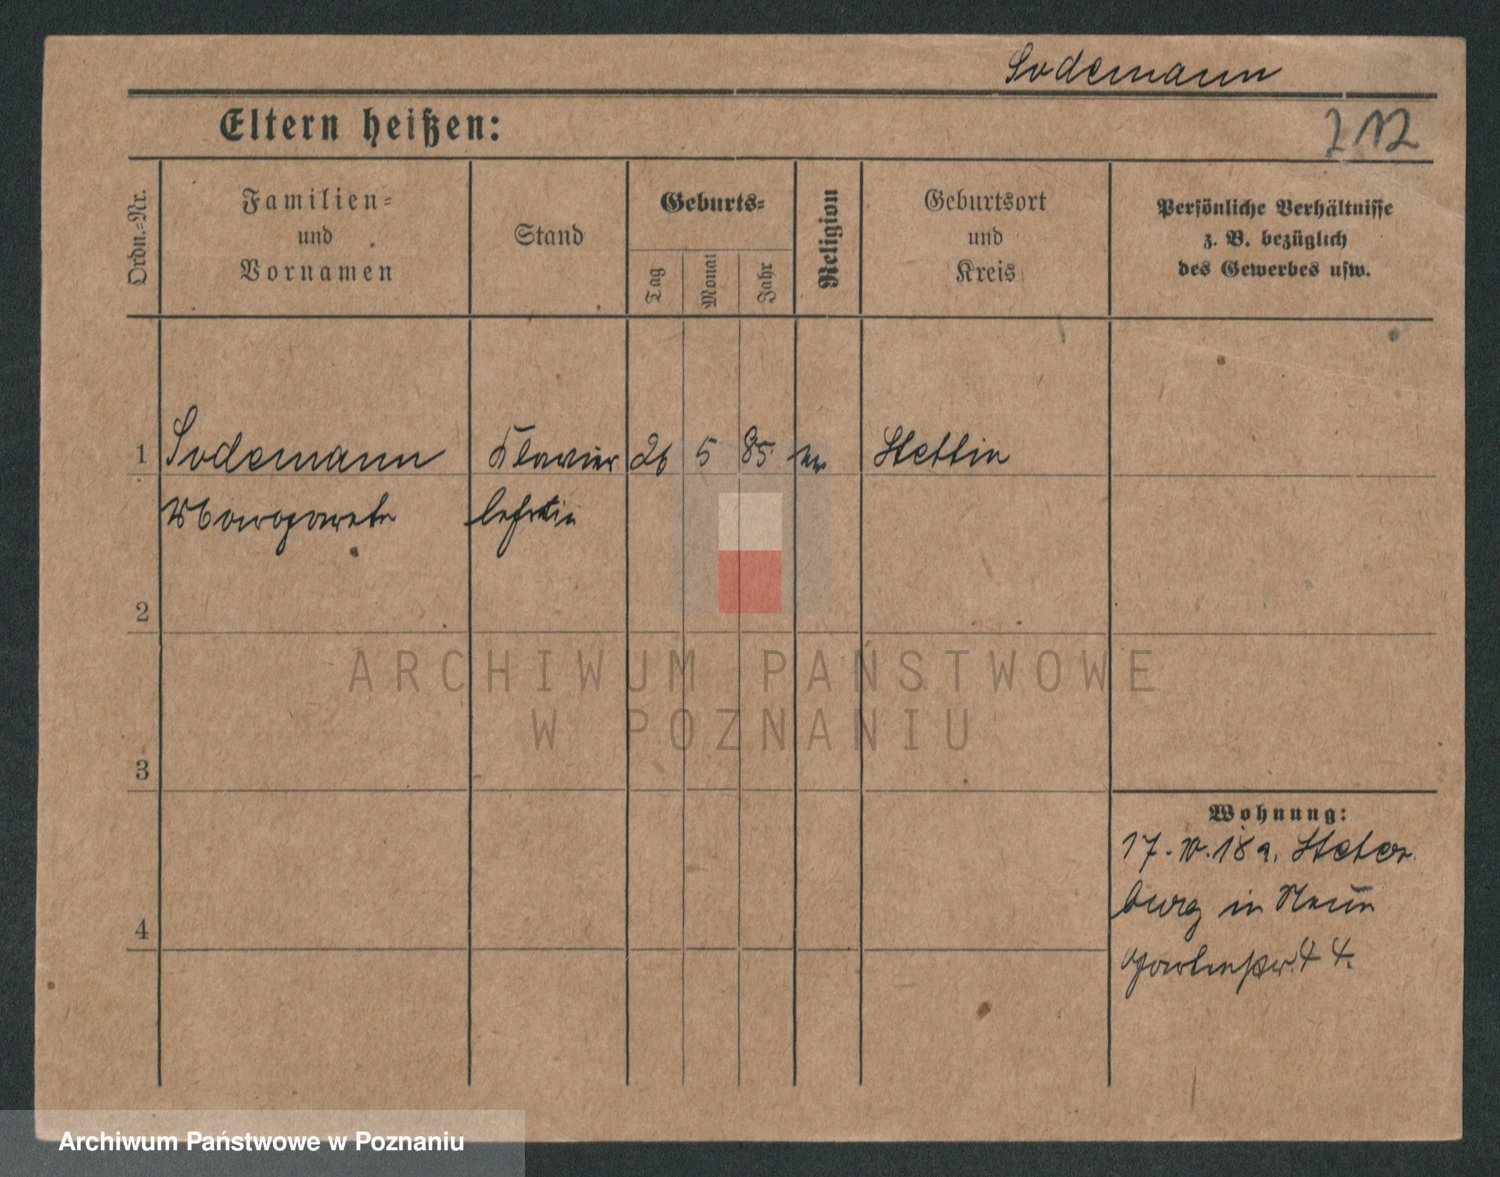 Sodemann
Eltern heißen:
212
Ordn.-Nr.
Familien-
und
Vornamen
Stand
Geburts-
Tag
Monat
Jahr
Religion
Geburtsort
und
Kreis
Persönliche Verhältnisse
z. B. bezüglich
des Gewerbes usw.
1 Sodemann Klavier 26 5 85 ev Stettin
Margarete lehrerin
2
ARCHIWUM PAŃSTWOWE
W POZNANIU
3
Wohnung:
17.10.18 a.
burg in
4
44.
Archiwum Państwowe w Poznaniu